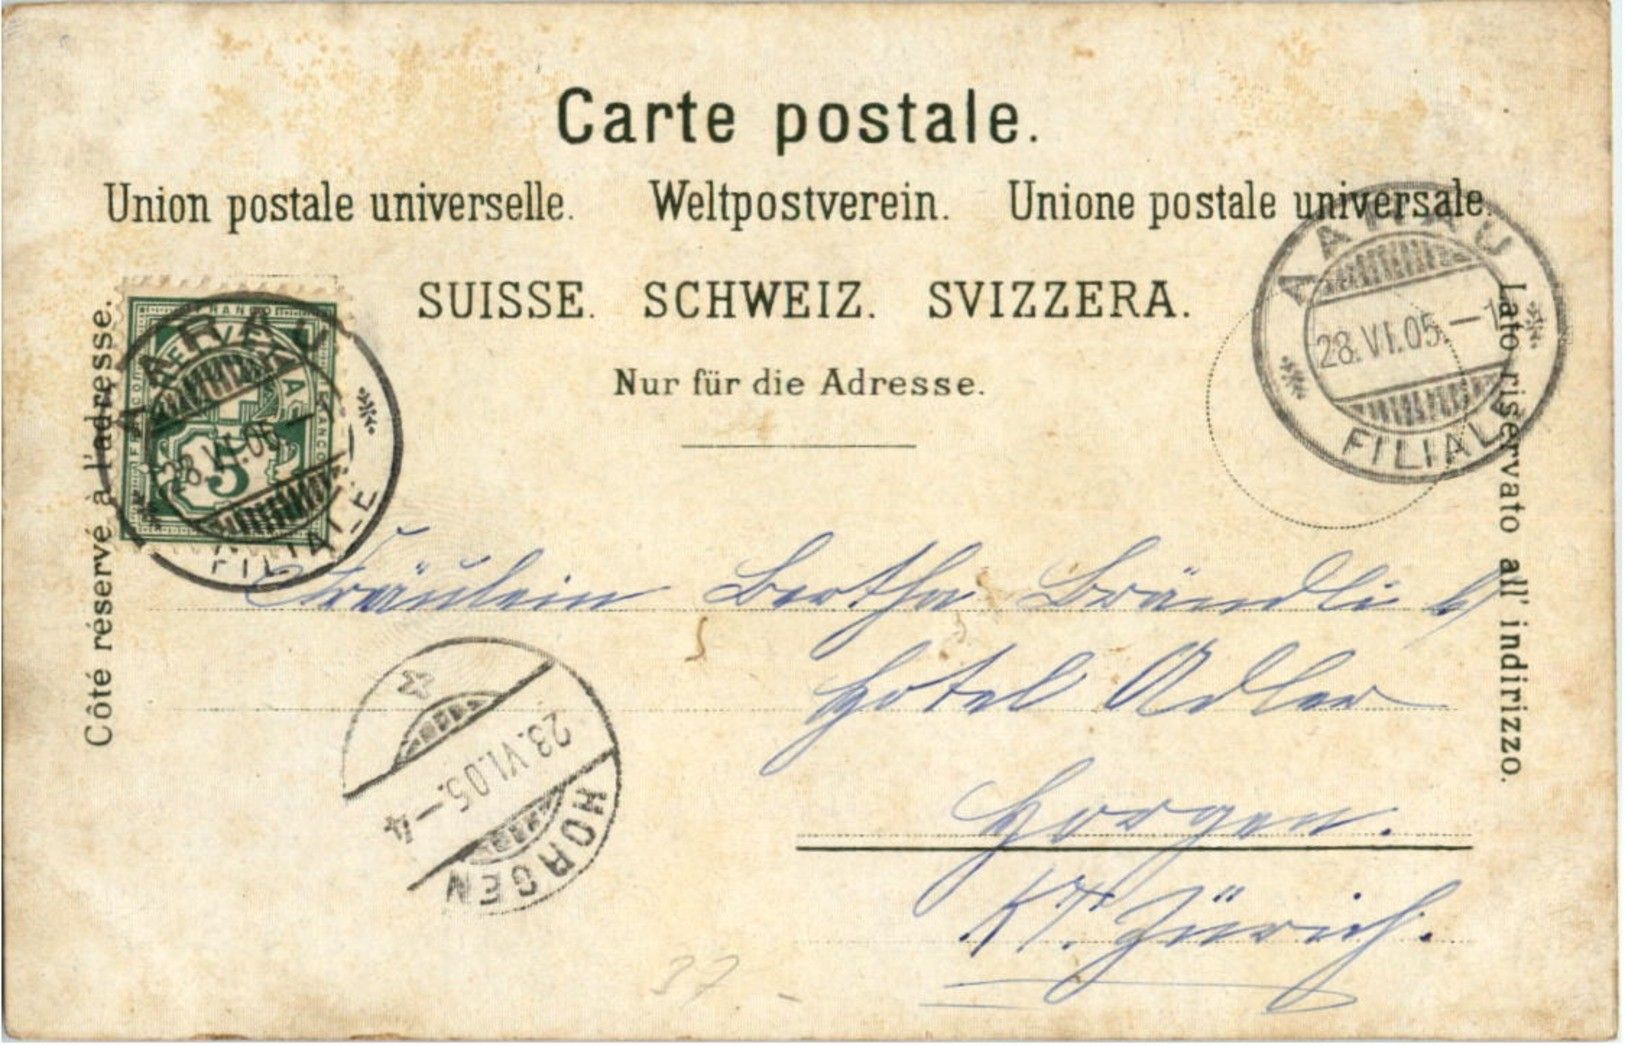 Carte postale.
Union postale universelle. Weltpostverein. Unione postale universale.
SUISSE. SCHWEIZ. SVIZZERA.
Nur für die Adresse.
Côté réservé à l'adresse.
Lato riservato all' indirizzo.
AARAU
28.VI.05.–
FILIALE
FRANCO
5
AARAU
28.VI.05.–1
FILIALE
Fräulein Bertha Brändli
Hotel Adler
Horgen.
Kt. Zürich.
28.VI.05.–4
HORGEN
37.–